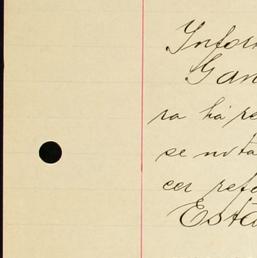 Infor
Gan
ra ha re
se nota
cer refe
Esta